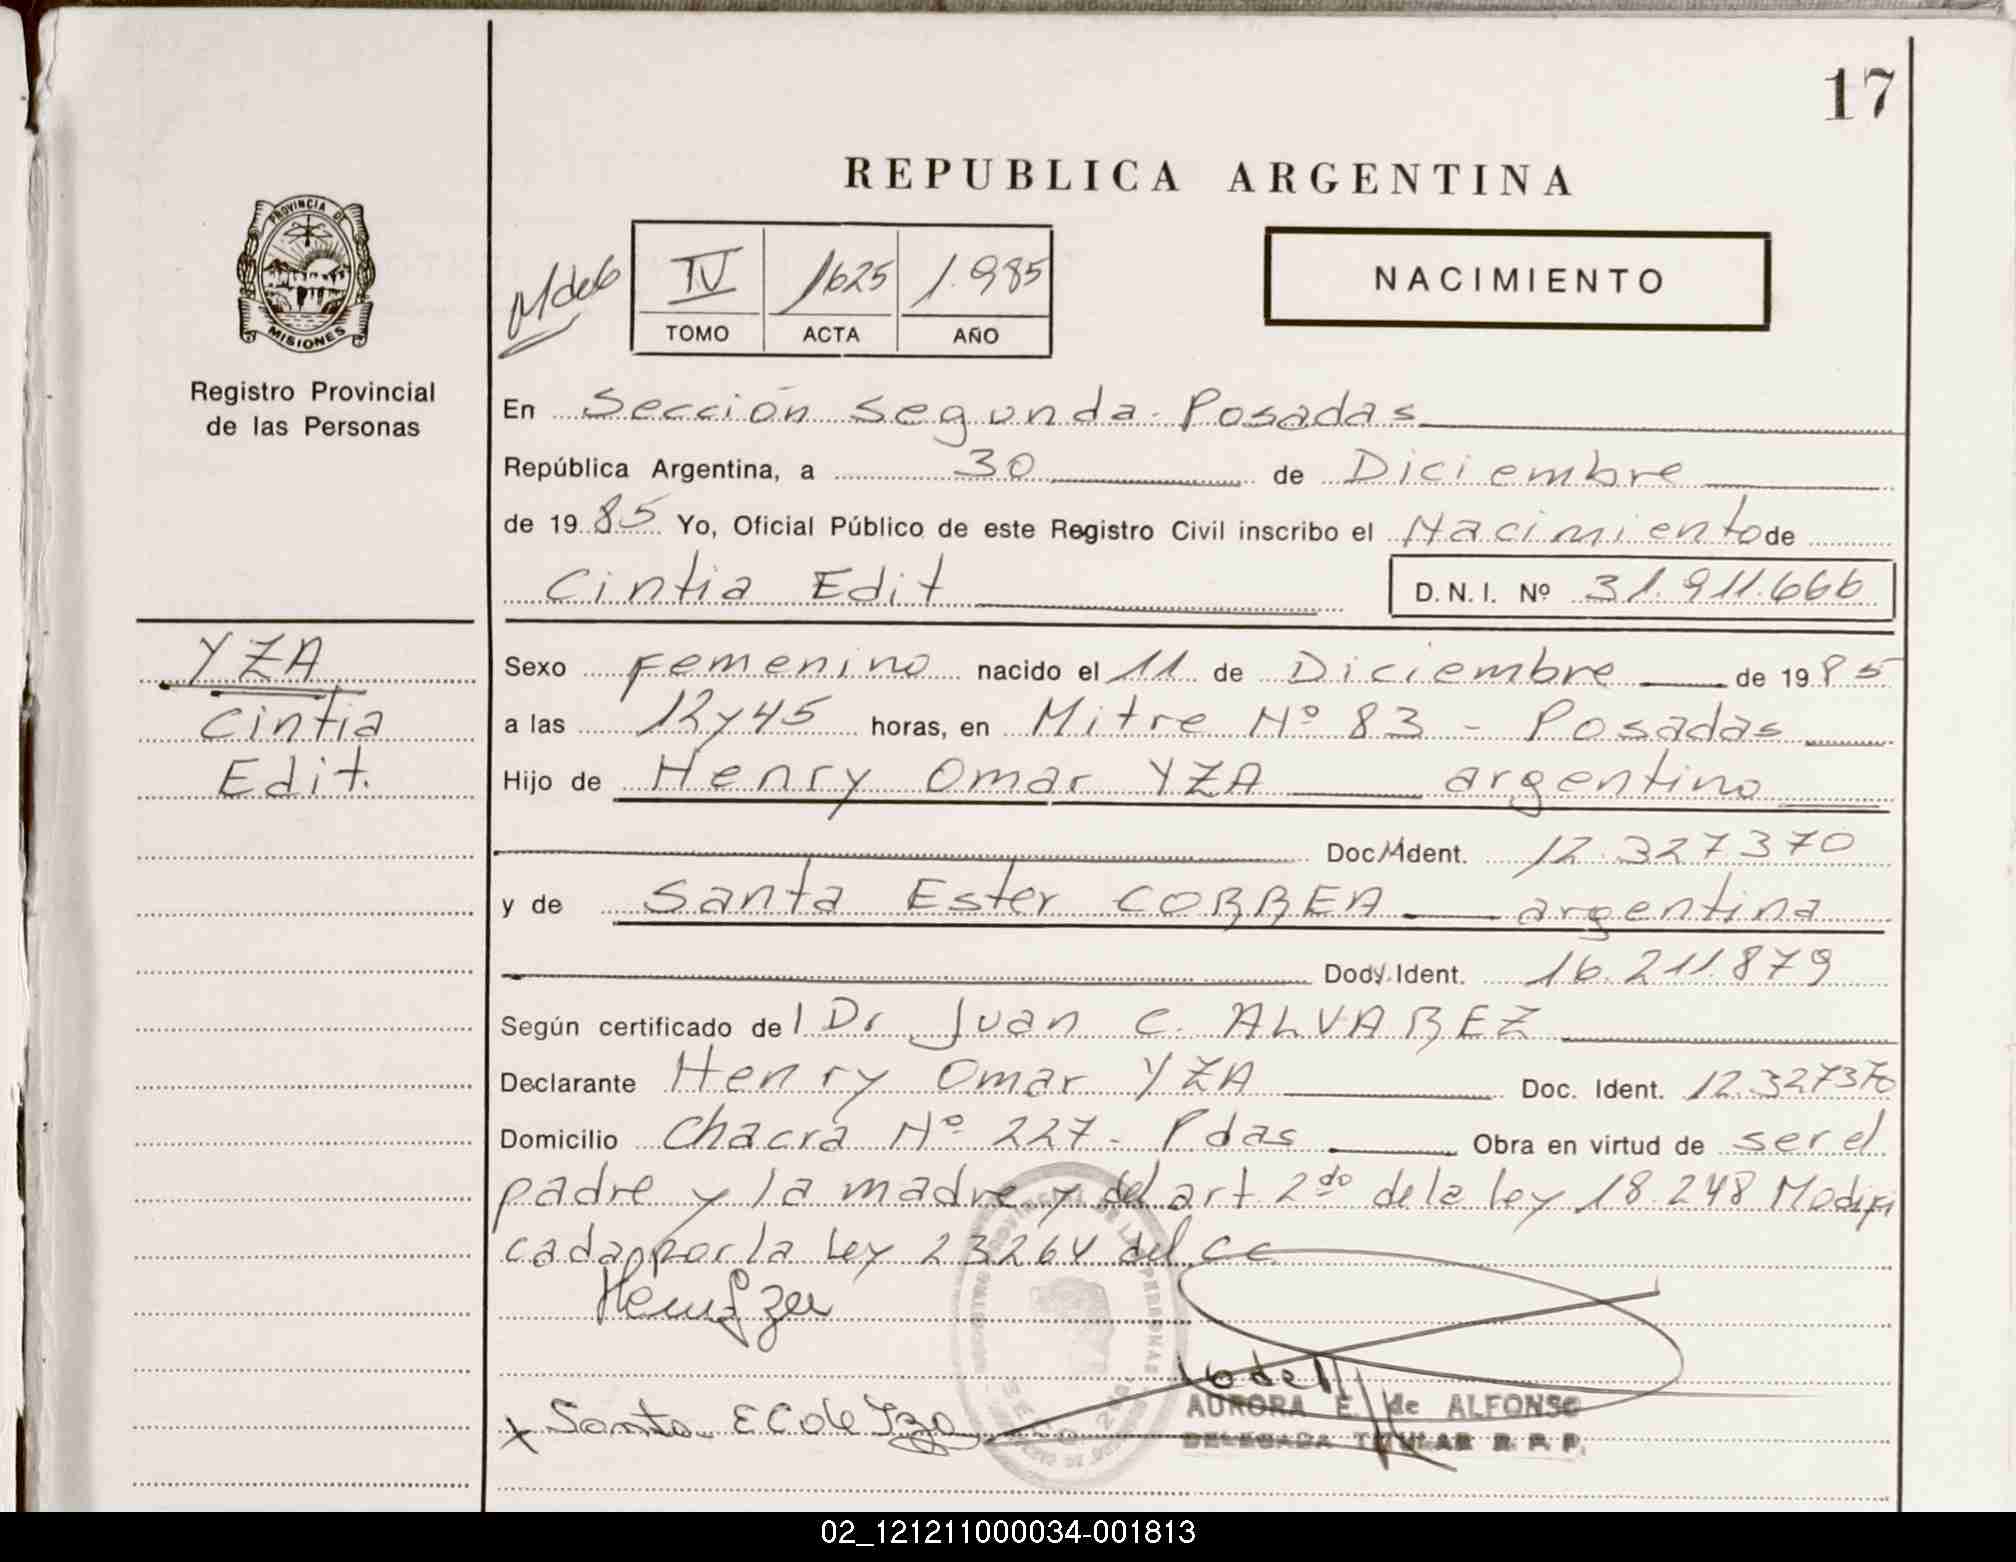 17
REPUBLICA ARGENTINA
PROVINCIA DE
MISIONES
Registro Provincial
de las Personas
IV 1625 1.985
TOMO ACTA AÑO
NACIMIENTO
En Sección Segunda - Posadas
República Argentina, a 30 de Diciembre
de 1985 Yo, Oficial Público de este Registro Civil inscribo el Nacimiento de
Cintia Edit D.N.I. Nº 31.911.666
YZA
Cintia
Edit.
Sexo Femenino nacido el 11 de Diciembre de 1985
a las 12 y 45 horas, en Mitre Nº 83 - Posadas
Hijo de Henry Omar YZA argentino
Doc. Ident. 12.327370
y de Santa Ester CORREA argentina
Doc. Ident. 16.211.879
Según certificado del Dr Juan C. ALVAREZ
Declarante Henry Omar YZA Doc. Ident. 12.327370
Domicilio Chacra Nº 227 - Pdas Obra en virtud de ser el
padre y la madre y del art 2do de la Ley 18.248 Modifi
cada por la Ley 23264 del C C.
Santa E C de Yza
AURORA E. de ALFONSO
DELEGADA TITULAR R. P. P.
02_121211000034-001813